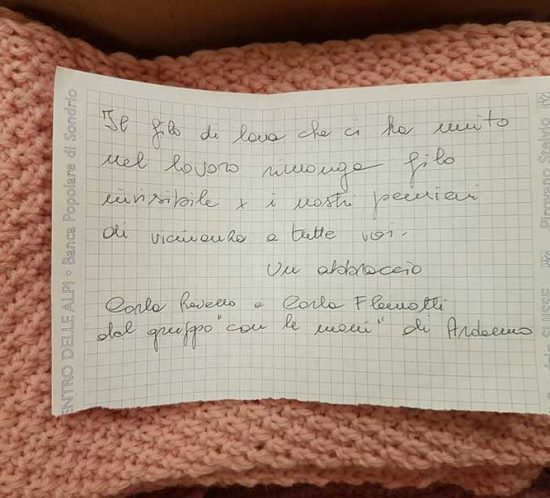 Il filo di lana che ci ha unito
nel lavoro rimanga filo
invisibile x i nostri pensieri
di vicinanza a tutte voi.
Un abbraccio
Carla e Carla
dal gruppo "con le mani" di Ardenno
CENTRO DELLE ALPI • Banca Popolare di Sondrio
Stelvio